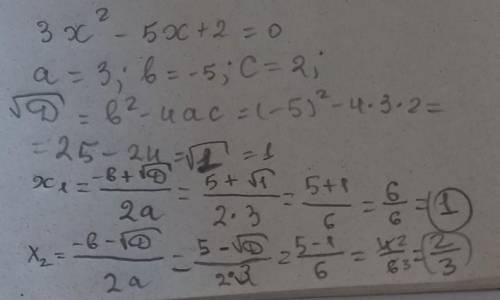 3x² - 5x + 2 = 0
a = 3; в = -5; c = 2;
√D = в² - 4ac = (-5)² - 4·3·2 =
= 25 - 24 = √1 = 1
x₁ = (-в + √D)/2a = (5 + √1)/2·3 = (5+1)/6 = 6/6 = 1
x₂ = (-в - √D)/2a = (5 - √D)/2·3 = (5-1)/6 = 4²/6³ = 2/3